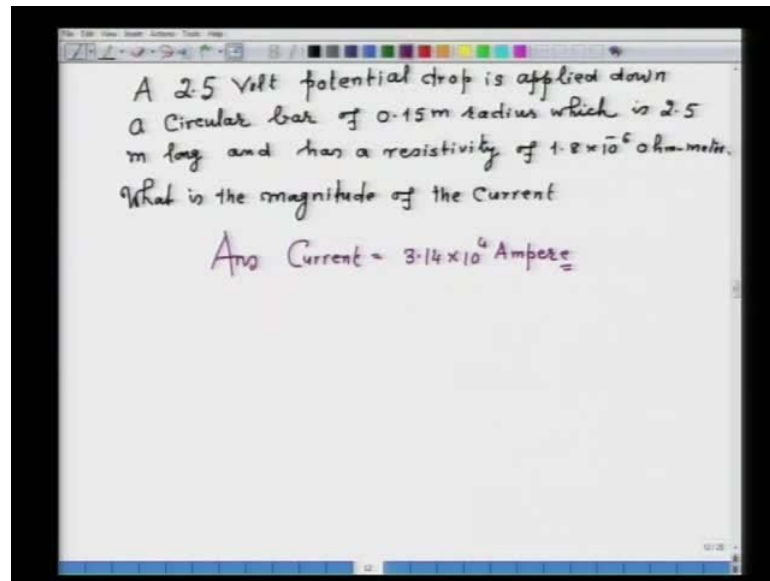 A 2.5 Volt potential drop is applied down
a Circular bar of 0.15m radius which is 2.5
m long and has a resistivity of 1.8×10⁻⁶ ohm-meter.
What is the magnitude of the Current
Ans Current = 3.14×10⁴ Ampere